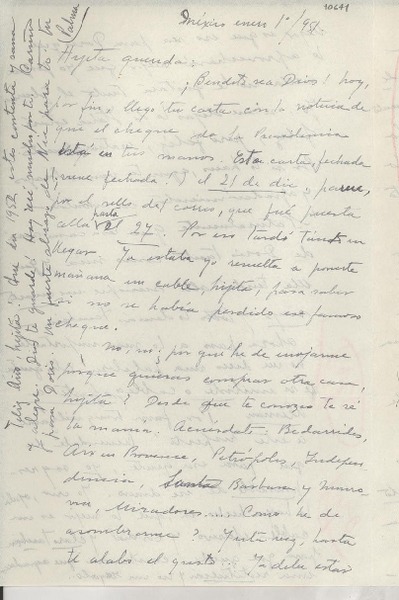 10641
México enero 1º/951-
Hijita querida:
¡Bendito sea Dios! hoy,
por fin, llegó tu carta con la noticia de
que el cheque de la Providencia
está en tus manos. Esta carta, fechada
(viene fechada!) el 21 de dic., parece,
por el sello del correo, que fué puesta
allá hasta el 27. Por eso tardó tanto en
llegar. Ya estaba yo resuelta a ponerte
mañana un cable, hijita, para saber
si no se había perdido ese famoso
cheque.
No, no; por qué he de enojarme
porque quieras comprar otra casa,
hijita? Desde que te conozco te sé
la manía. Acuérdate: Bedarrides,
Aix en Provence, Petrópolis, Indepen
dencia, Santa Bárbara y Monro
via, Miradores... Cómo he de
asombrarme? Y esta vez, hasta
te alabo el gusto. Ya debes estar
Feliz Año, hijita. Que en 1952 estés contenta y sana
y alegre. Dios te guarde! Hoy recé mucho por ti. Cariños
para Doris. Un fuerte abrazo de Año Nuevo para ti de tu
Palma